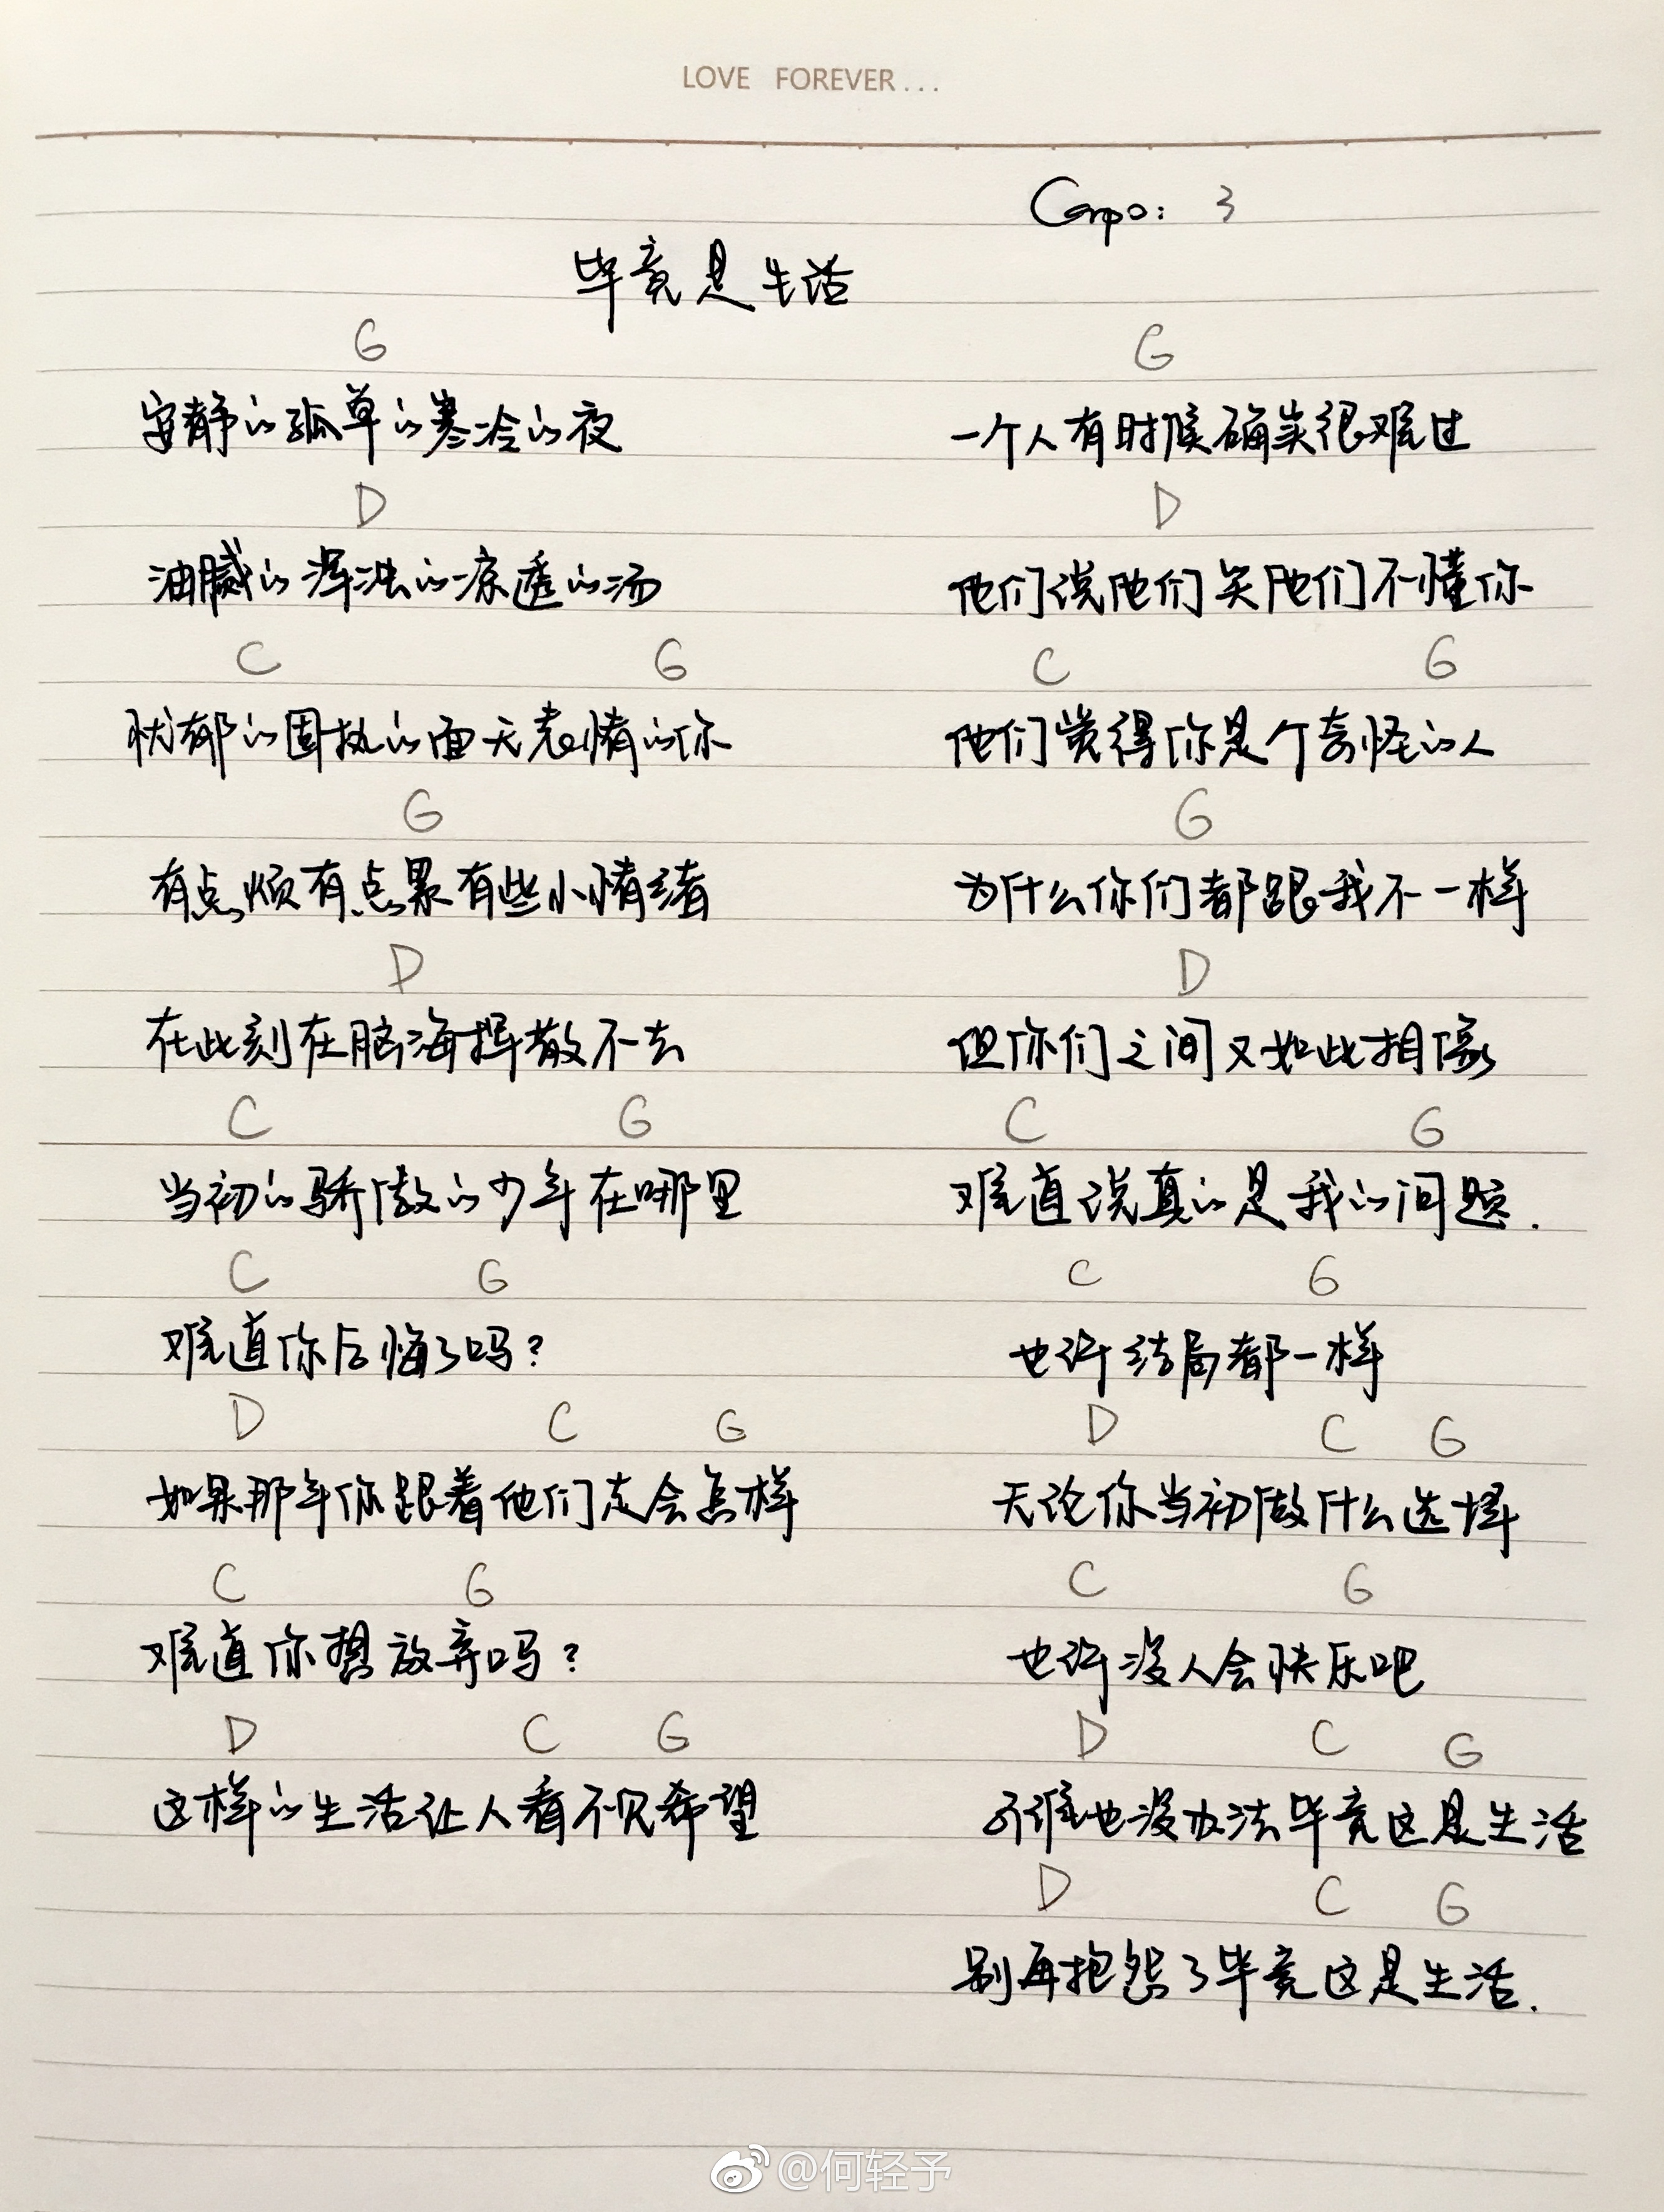 LOVE FOREVER...
Capo: 3
毕竟是生活
G
安静的孤单的寒冷的夜
D
油腻的浑浊的凉透的汤
C G
忧郁的固执的面无表情的你
G
有点烦有点累有些小情绪
D
在此刻在脑海挥散不去
C G
当初的骄傲的少年在哪里
C G
难道你后悔了吗?
D C G
如果那年你跟着他们走会怎样
C G
难道你想放弃吗?
D C G
这样的生活让人看不见希望
G
一个人有时候确实很难过
D
他们说他们笑他们不懂你
C G
他们觉得你是个奇怪的人
G
为什么你们都跟我不一样
D
但你们之间又如此相像
C G
难道说真的是我的问题.
C G
也许结局都一样
D C G
无论你当初做什么选择
C G
也许没人会快乐吧
D C G
可谁也没办法毕竟这是生活
D C G
别再抱怨了毕竟这是生活.
@何轻予